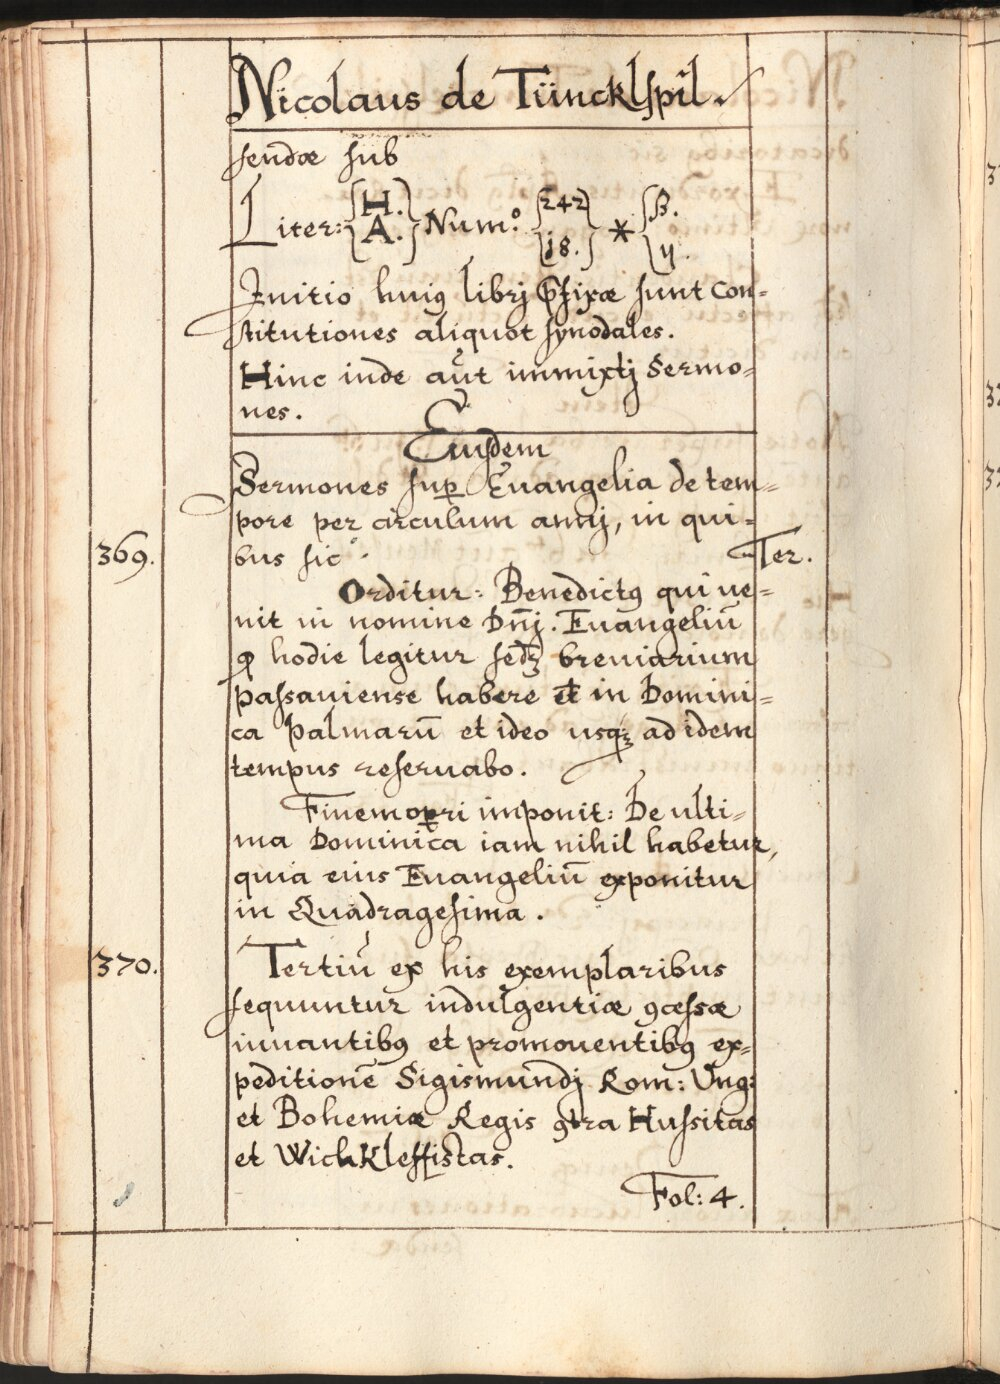 Nicolaus de Tüncklspil.
sendæ sub
Liter: {H. A.} Num.o {242 18.} * {β. y.
Initio huiꝰ librj p̄fixæ sunt con=
stitutiones aliquot synodales.
Hinc inde aūt immixtj Sermo=
nes.
Eiusdem
Sermones suꝑ Euangelia de tem=
pore per circulum annj, in qui=
369. bus sic Ter.
Orditur: Benedictꝰ qui ue=
nit in nomine Dn̄j. Euangeliū
ꝙ hodie legitur sedꝫ breuiarium
passauiense habere et in Domini=
ca Palmarū et ideo usqꝫ ad idem
tempus reseruabo.
Finem oꝑri imponit: De ulti=
ma Dominica iam nihil habetur,
quia eius Euangeliū exponitur
in Quadragesima.
370. Tertiū ex his exemplaribus
sequuntur indulgentiæ ꝯcessæ
iuuantibꝰ et promouentibꝰ ex=
peditionē Sigismundj Rom: Vng:
et Bohemiæ Regis ꝯtra Hussitas
et Wickkleffistas.
Fol: 4.